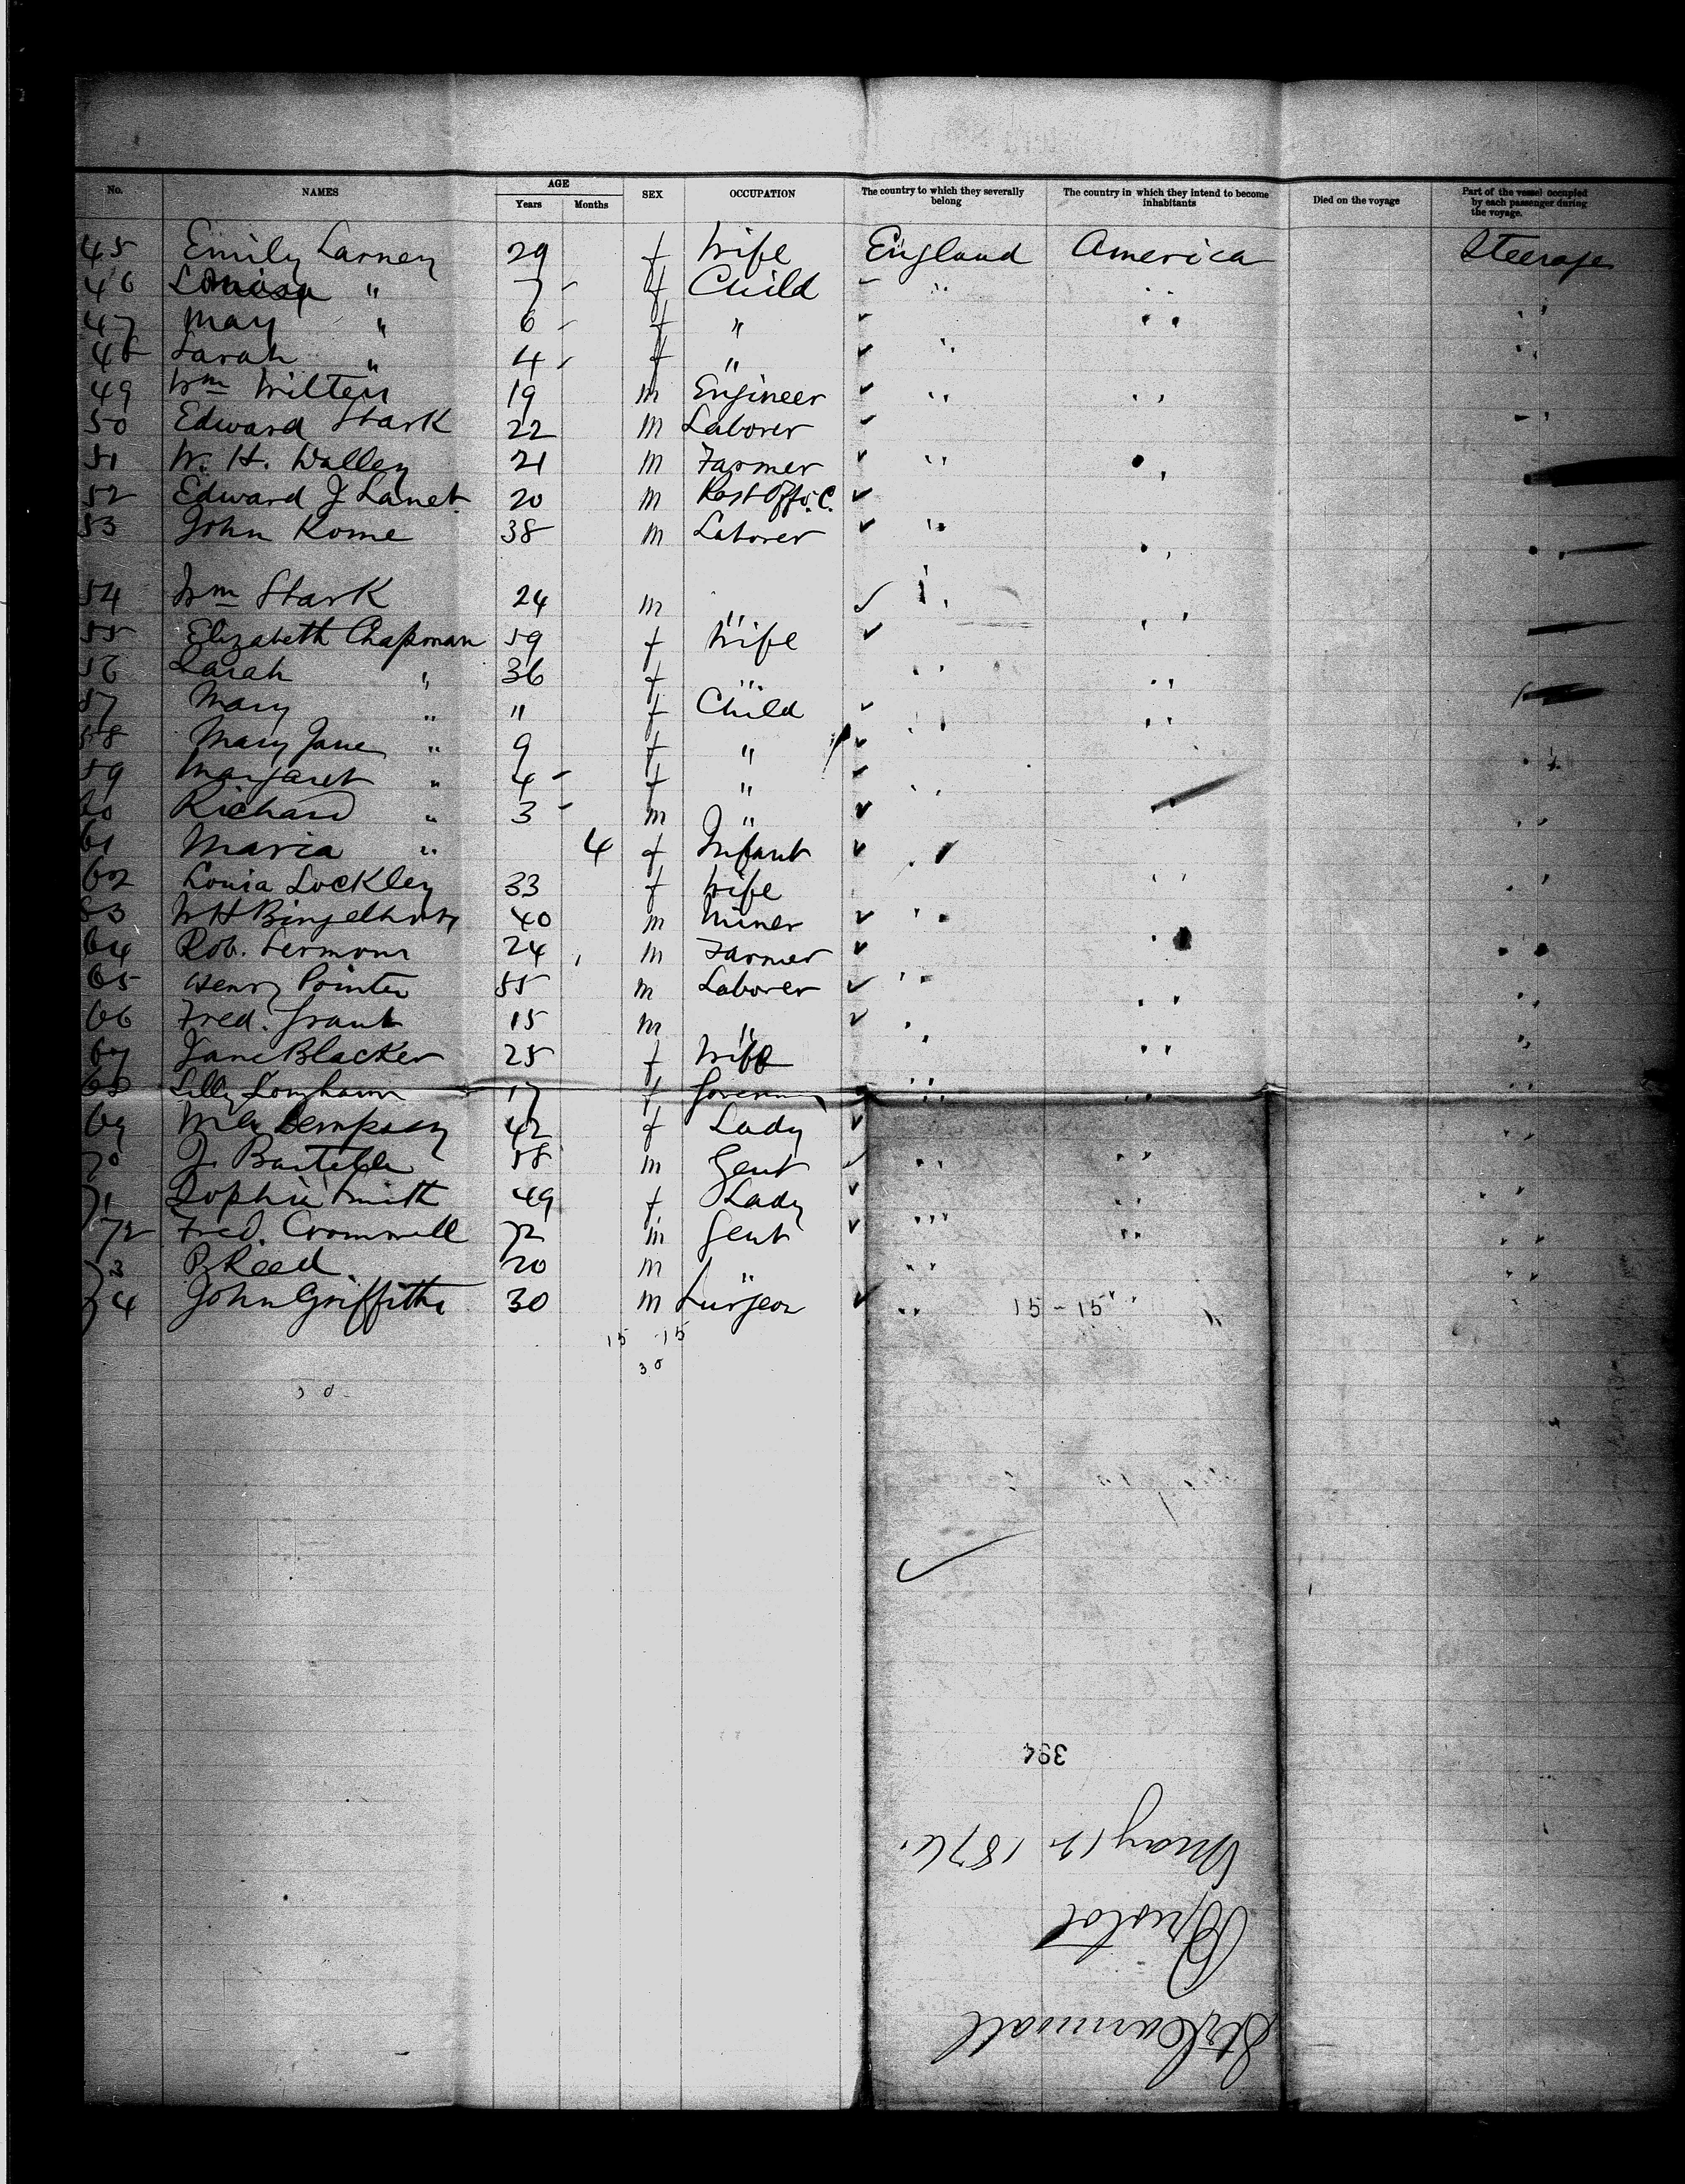 No. NAMES AGE Years Months SEX OCCUPATION The country to which they severally belong The country in which they intend to become inhabitants Died on the voyage Part of the vessel occupied by each passenger during the voyage.
45 Emily Larney 29 f Wife England America Steerage
46 Louisa " 7 f Child " "
47 Mary " 6 f " " "
48 Sarah " 4 f " " "
49 Wm Wilten 19 m Engineer " "
50 Edward Stark 22 m Laborer "
51 W. H. Walley 21 m Farmer " "
52 Edward J Lanet 20 m Post Offi. C.
53 John Rome 38 m Laborer " " "
54 Wm Stark 24 m " " "
55 Elizabeth Chapman 59 f Wife
56 Sarah " 36 f " " "
57 Mary " " f Child " "
58 Mary Jane " 9 f " "
59 Margaret " 4 f " "
60 Richard " 3 m " " "
61 Maria " 4 f Infant
62 Louia Lockley 33 f Wife " "
63 W H 40 m Miner "
64 Rob. 24 m Farmer " "
65 Henry Pointer 55 m Laborer " " "
66 Fred. Grant 15 m " "
67 Jane Blacker 25 f Wife " " "
68 Lilly Longhawn 17 f " " "
69 Dempsey 42 f Lady "
70 J. 58 m Gent " "
71 Sophie Smith 49 f Lady " "
72 Fred. Cromwell 72 m Gent " " "
73 P. Reed 20 m " " "
74 John Griffiths 30 m Surgeon " 15-15 "
15-15
30
30
394
May 12 1876.
Bristol
Str Cornwall